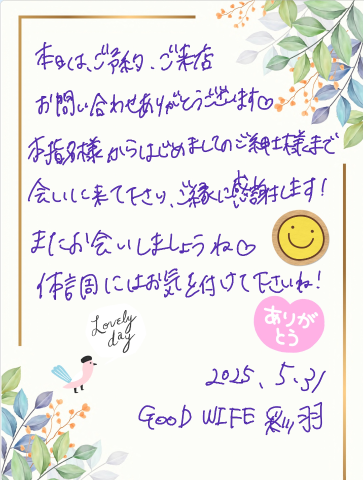 本日は、ご予約、ご来店
お問い合わせありがとうございます♡
本指名様からはじめましてのご紳士様まで
会いに来て下さり、ご縁に感謝します!
またお会いしましょうね♡
体調にはお気を付けて下さいね!
ありがとう
Lovely day
2025、5.31
GOOD WIFE 彩羽